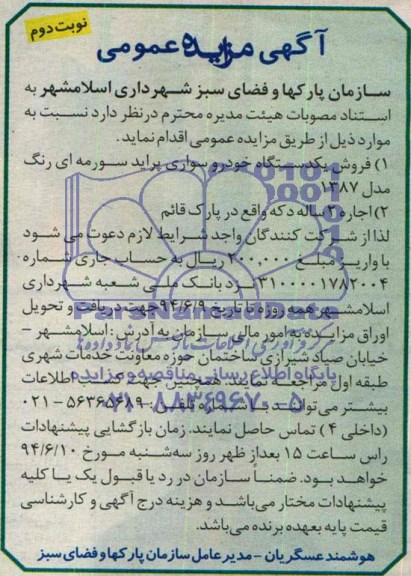 نوبت دوم
آگهی مزایده عمومی
سازمان پارکها و فضای سبز شهرداری اسلامشهر به
استناد مصوبات هیئت مدیره محترم در نظر دارد نسبت به
موارد ذیل از طریق مزایده عمومی اقدام نماید.
۱) فروش یکدستگاه خودرو سواری پراید سورمه ای رنگ
مدل ۱۳۸۷
۲) اجاره ۳ ساله دکه واقع در پارک قائم
لذا از شرکت کنندگان واجد شرایط لازم دعوت می شود
با واریز مبلغ ۲۰۰,۰۰۰ ریال به حساب جاری شماره
۳۱۰۰۰۰۱۷۸۲۰۰۴ نزد بانک ملی شعبه شهرداری
اسلامشهر همه روزه تا تاریخ ۹۴/۶/۹ جهت دریافت و تحویل
اوراق مزایده به امور مالی سازمان به آدرش: اسلامشهر -
خیابان صیاد شیرازی ساختمان حوزه معاونت خدمات شهری
طبقه اول مراجعه نمایند. همچنین جهت کسب اطلاعات
بیشتر می‌توانند با شماره تلفن: ۰۲۱ -
(داخلی ۴) تماس حاصل نمایند. زمان بازگشایی پیشنهادات
راس ساعت ۱۵ بعداز ظهر روز سه‌شنبه مورخ ۹۴/۶/۱۰
خواهد بود. ضمناً سازمان در رد یا قبول یک یا کلیه
پیشنهادات مختار می‌باشد و هزینه درج آگهی و کارشناسی
قیمت پایه بعهده برنده می‌باشد.
هوشمند عسگریان - مدیر عامل سازمان پارکها و فضای سبز
ParsNamadData
پایگاه اطلاع رسانی مناقصه و مزایده
۰۲۱-۸۸۳۴۹۶۷۰-۵